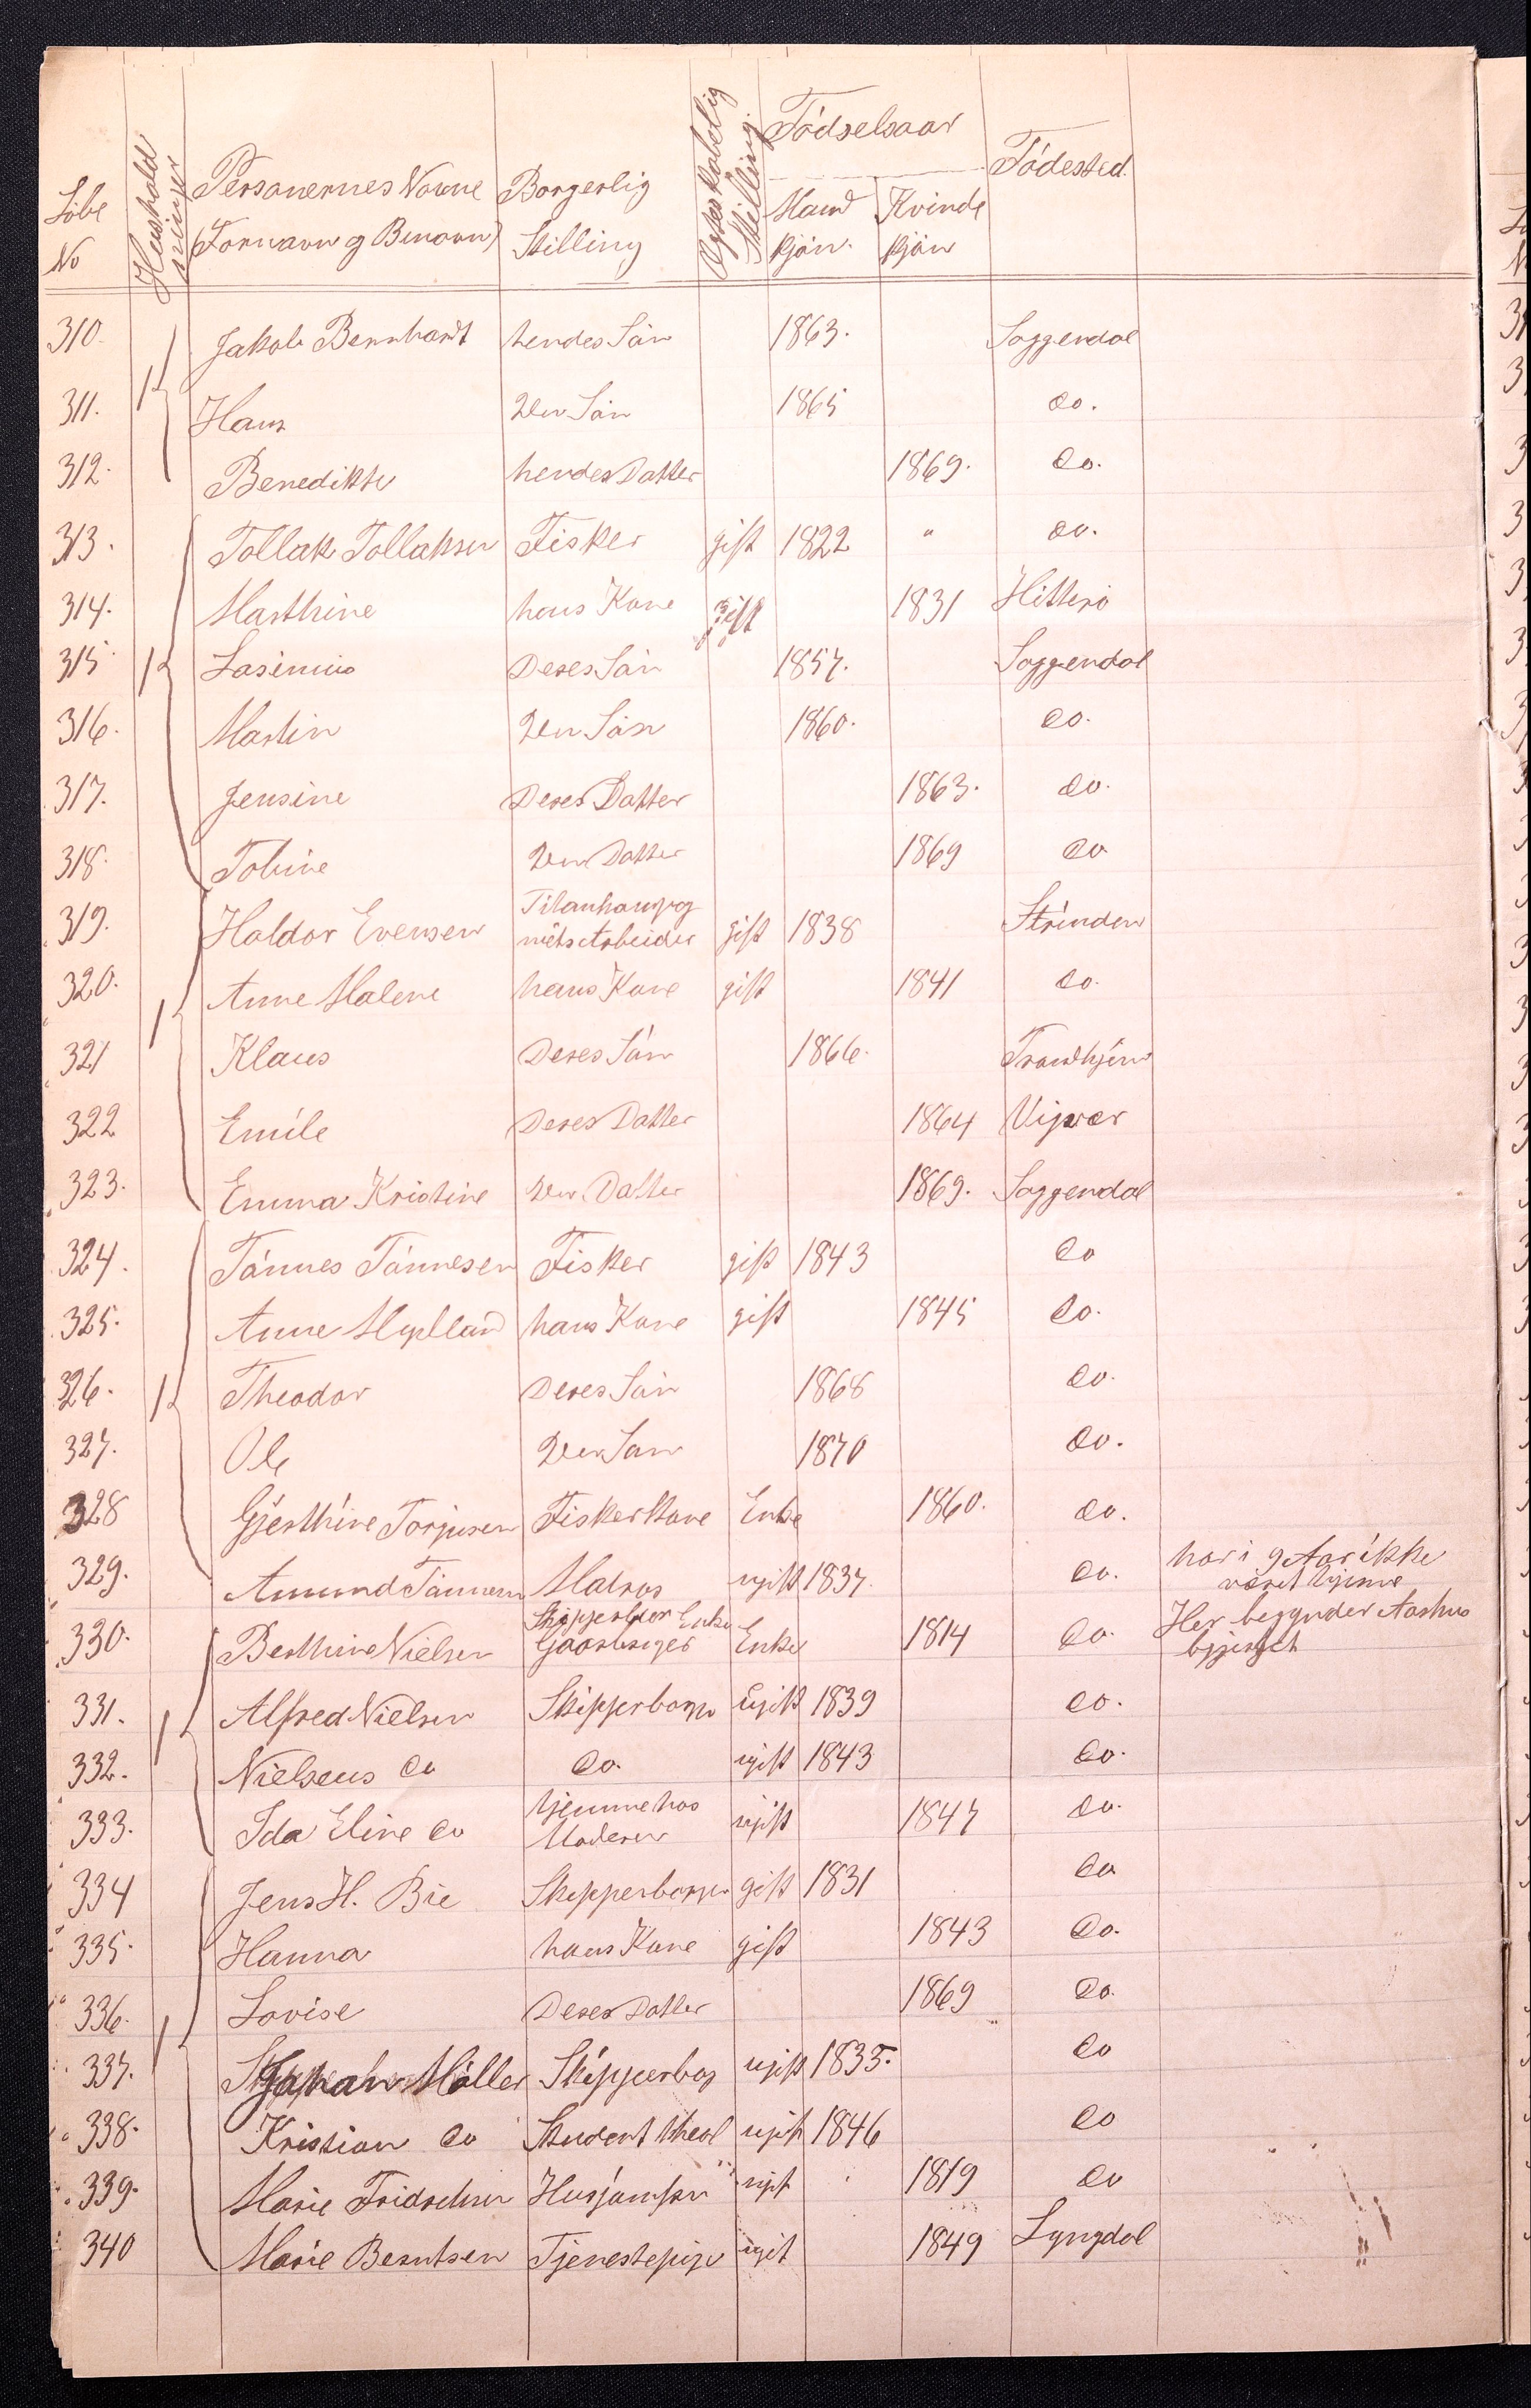 Løbe No | Hushold ninger | Personernes Navne (Fornavn og Binavn) | Borgerlig Stilling | Egteskabelig Stilling | Fødselsaar Mand kjøn. | Kvinde kjøn | Födested.
310. | Jakob Bernhardt | hendes Sön | 1863. | Soggendal
311. | 1 | Hans | Den Sön | 1865 | do.
312. | Benedikte | hendes Datter | 1869. | do.
313. | Tollak Tollaksen | Fisker | gift | 1822 | " | do.
314. | Marthine | hans Kone | gift | 1831 | Hitterö
315 | 1 | Lasimius | Deres Sön | 1857. | Soggendal
316. | Martin | Den Sön | 1860. | do.
317. | Jensine | Deres Datter | 1863. | do.
318. | Tobine | Den Datter | 1869 | do
319. | Haldor Evensen | gift | 1838 | Strinden
320. | 1 | Anne Malene | hans Kone | gift | 1841 | do.
321 | Klaus | Deres Sön | 1866. | Trondhjem
322 | Emile | Deres Datter | 1864
323. | Emma Kristine | Den Datter | 1869. | Soggendal
324. | Tönnes Tönnesen | Fisker | gift | 1843 | do
325. | Anne | hans Kone | gift | 1845 | do.
326. | 1 | Theodor | Deres Sön | 1868 | do.
327. | Ole | Den Sön | 1870 | do.
328 | Gjerthine Torjusen | Fisker Kone | Enke | 1860. | do.
329. | Amund Tönnesen | Matros | ugift | 1837. | do. | har i 9 Aar ikke
været hjemme
330. | Berthine Nielsen | Skipperborger Enke
Gaardsejer | Enke | 1814 | do. | Her begynder Aashus
331. | 1 | Alfred Nielsen | Skipperborger | ugift | 1839 | do.
332. | Nielseus do | do. | ugift | 1843 | do.
333. | Ida Eline do | hjemme hos
Moderen | ugift | 1847 | do.
334 | Jens H. Bie | Skipperborger | gift | 1831 | do
335. | Hanna | hans Kone | gift | 1843 | do.
336. | 1 | Lovise | Deres Datter | 1869 | do.
337. | Johan Möller | Skipperborg | ugift | 1835. | do
338. | Kristian do | Student theol | ugift | 1846 | do
339. | Marie Fridrichsen | Husjomfru | ugift | 1819 | do
340 | Marie Berntsen | Tjenestepige | ugift | 1849 | Lyngdal